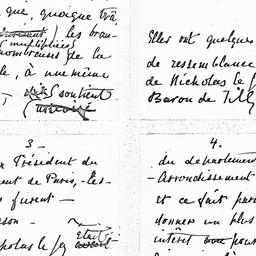 que, quoique très
les bran-
multipliées
nombreuses de la
le, à une même
sontient
Elles ont quelques
de ressemblance
de Nicholas le f
Baron de Tilly
3 -
Président du
ment de Paris, - les-
s furent -
son -
colas le f était
4.
du département
- Arrondissement
et ce fait pour
donner un plus
intérêt pour